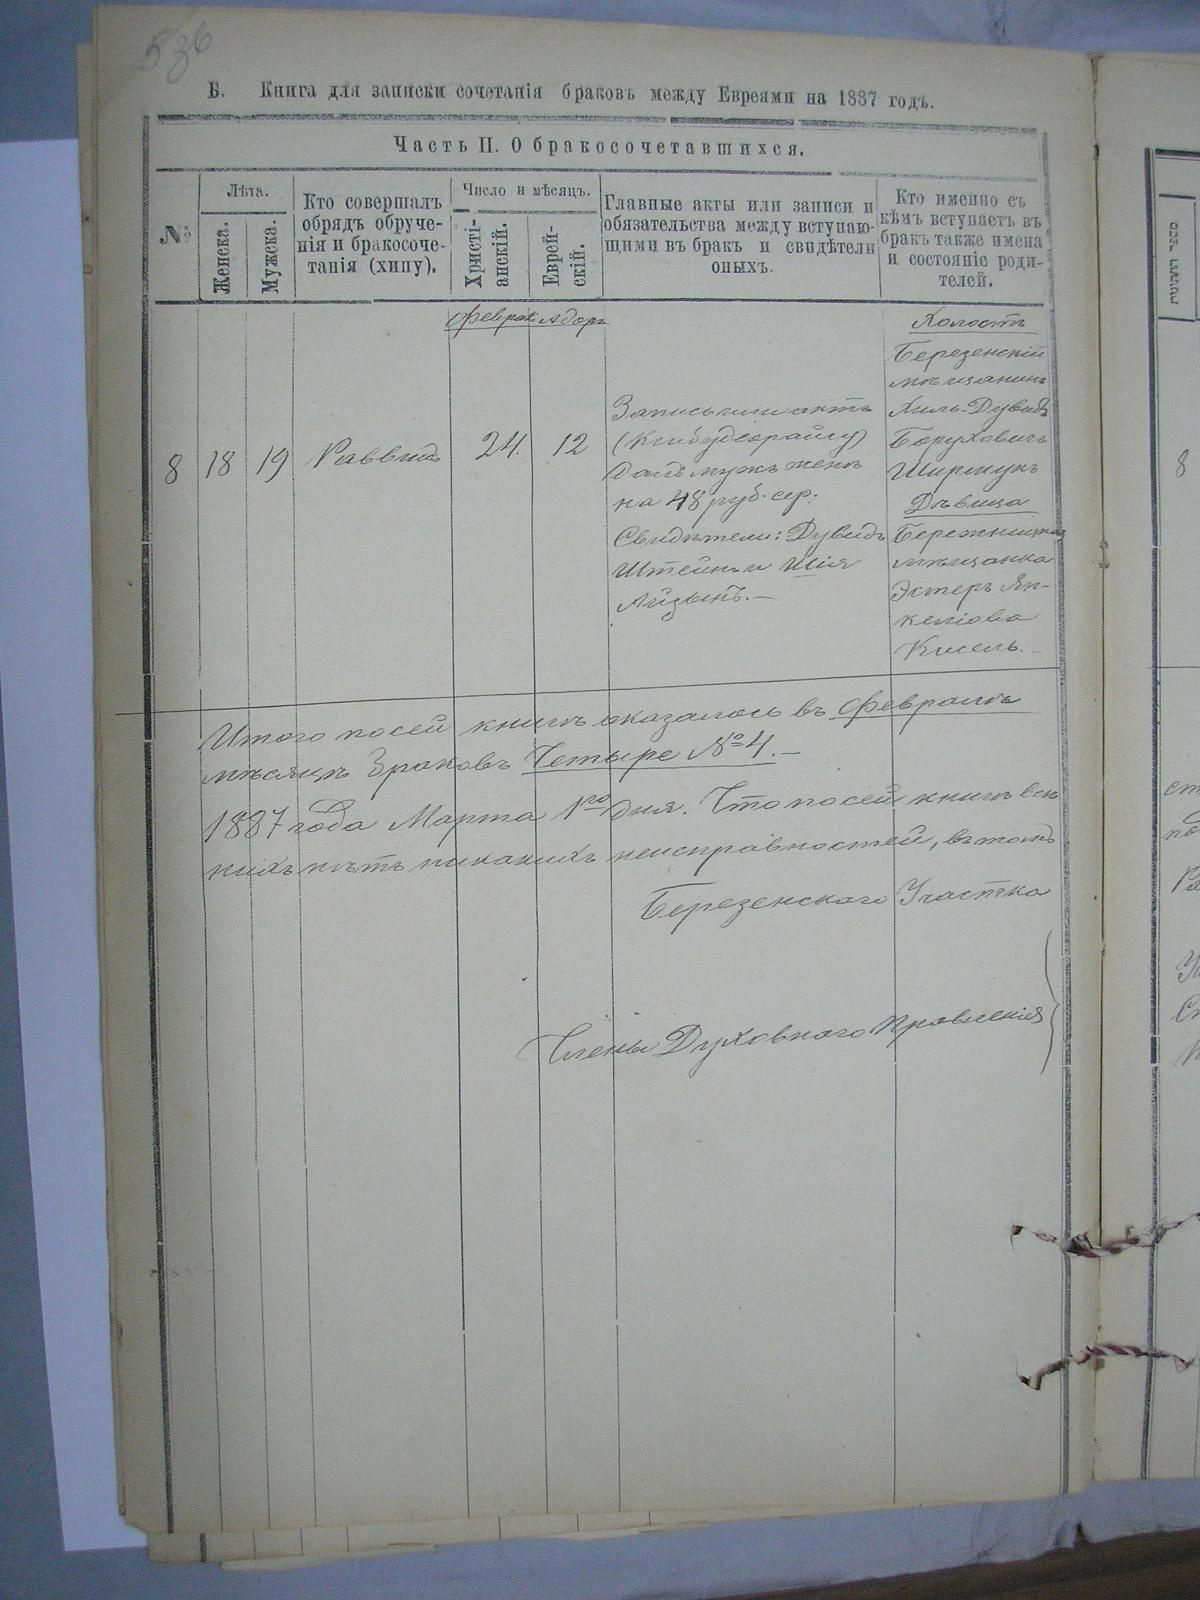 536
Б. Книга для записки сочетанія браковъ между Евреями на 1887 годъ.
Часть II. О бракосочетавшихся.
№
Лѣта.
Женска.
Мужска.
Кто совершалъ
обрядъ обруче-
нія и бракосоче-
танія (хипу).
Число и мѣсяцъ.
Христі-
анскій.
Еврей-
скій.
Главные акты или записи и
обязательства между вступаю-
щими въ бракъ и свидѣтели
оныхъ.
Кто именно съ
кѣмъ вступаетъ въ
бракъ также имена
и состояніе роди-
телей.
Феврал Адоръ
8 18 19 Раввинъ 24. 12
Запись или актъ
далъ мужъ женѣ
на 48 руб. сер.
Свидѣтели: Дувидъ
Штейнъ и Шія
Айзынъ.—
Холостъ
Березенскій
мѣщанинъ
Хиль-Дувидъ
Боруховичъ
Ширмукъ
Дѣвица
Бережницкая
мѣщанка
Эстеръ Ян-
келіова
Кисель.—
Итого по сей книгѣ оказалось въ Февралѣ
мѣсяцѣ браковъ Четыре № 4.—
1887 года Марта 1го дня. Что по сей книгѣ
нихъ нѣтъ никакихъ неисправностей, въ томъ
Березенскаго Участка
Члены Духовнаго Правленія
ספר החתונות
8